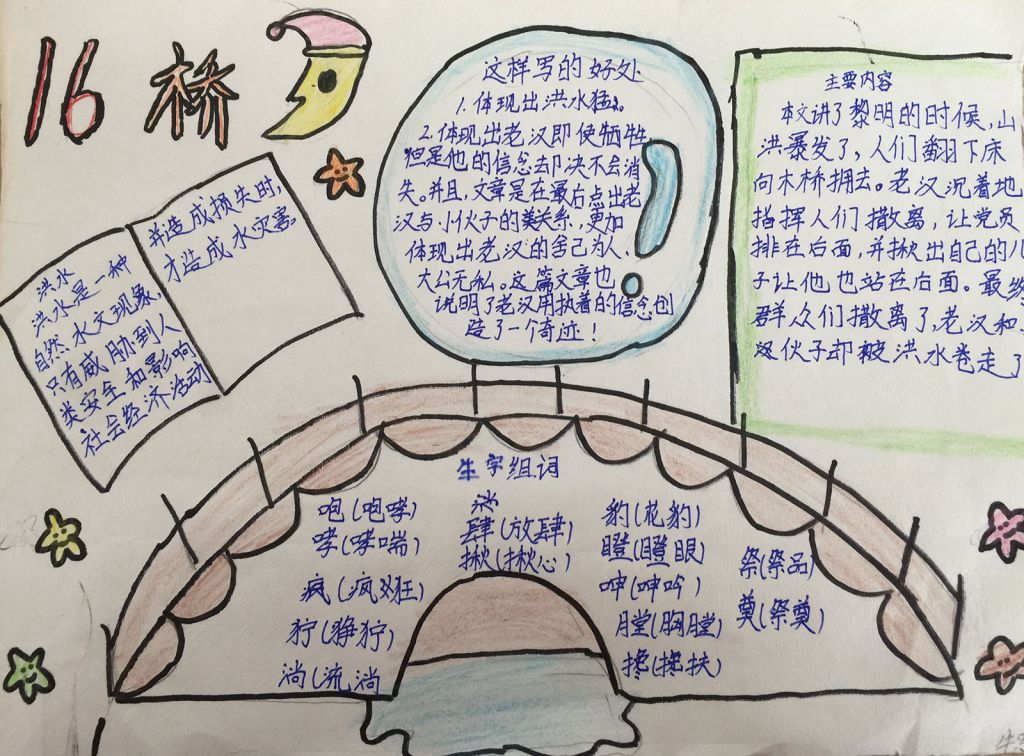 16 桥
这样写的好处
1.体现出洪水猛。
2.体现出老汉即使牺牲
但是他的信念却决不会消
失。并且,文章是在最后点出老
汉与小伙子的关系,更加
体现出老汉的舍己为人、
大公无私。这篇文章也
说明了老汉用执着的信念创
造了一个奇迹!
主要内容
本文讲了黎明的时候,山
洪暴发了,人们翻下床
向木桥拥去。老汉沉着地
指挥人们撤离,让党员
排在后面,并揪出自己的儿
子让他也站在后面。最终
群众们撤离了,老汉和
小伙子却被洪水卷走了
洪水
洪水是一种
自然水文现象,
只有威胁到人
类安全和影响
社会经济活动
并造成损失时,
才造成水灾害
生字组词
咆(咆哮)
哮(哮喘)
疯(疯狂)
狞(狰狞)
淌(流淌)
肆(放肆)
揪(揪心)
豹(花豹)
瞪(瞪眼)
呻(呻吟)
膛(胸膛)
搀(搀扶)
祭(祭品)
奠(祭奠)